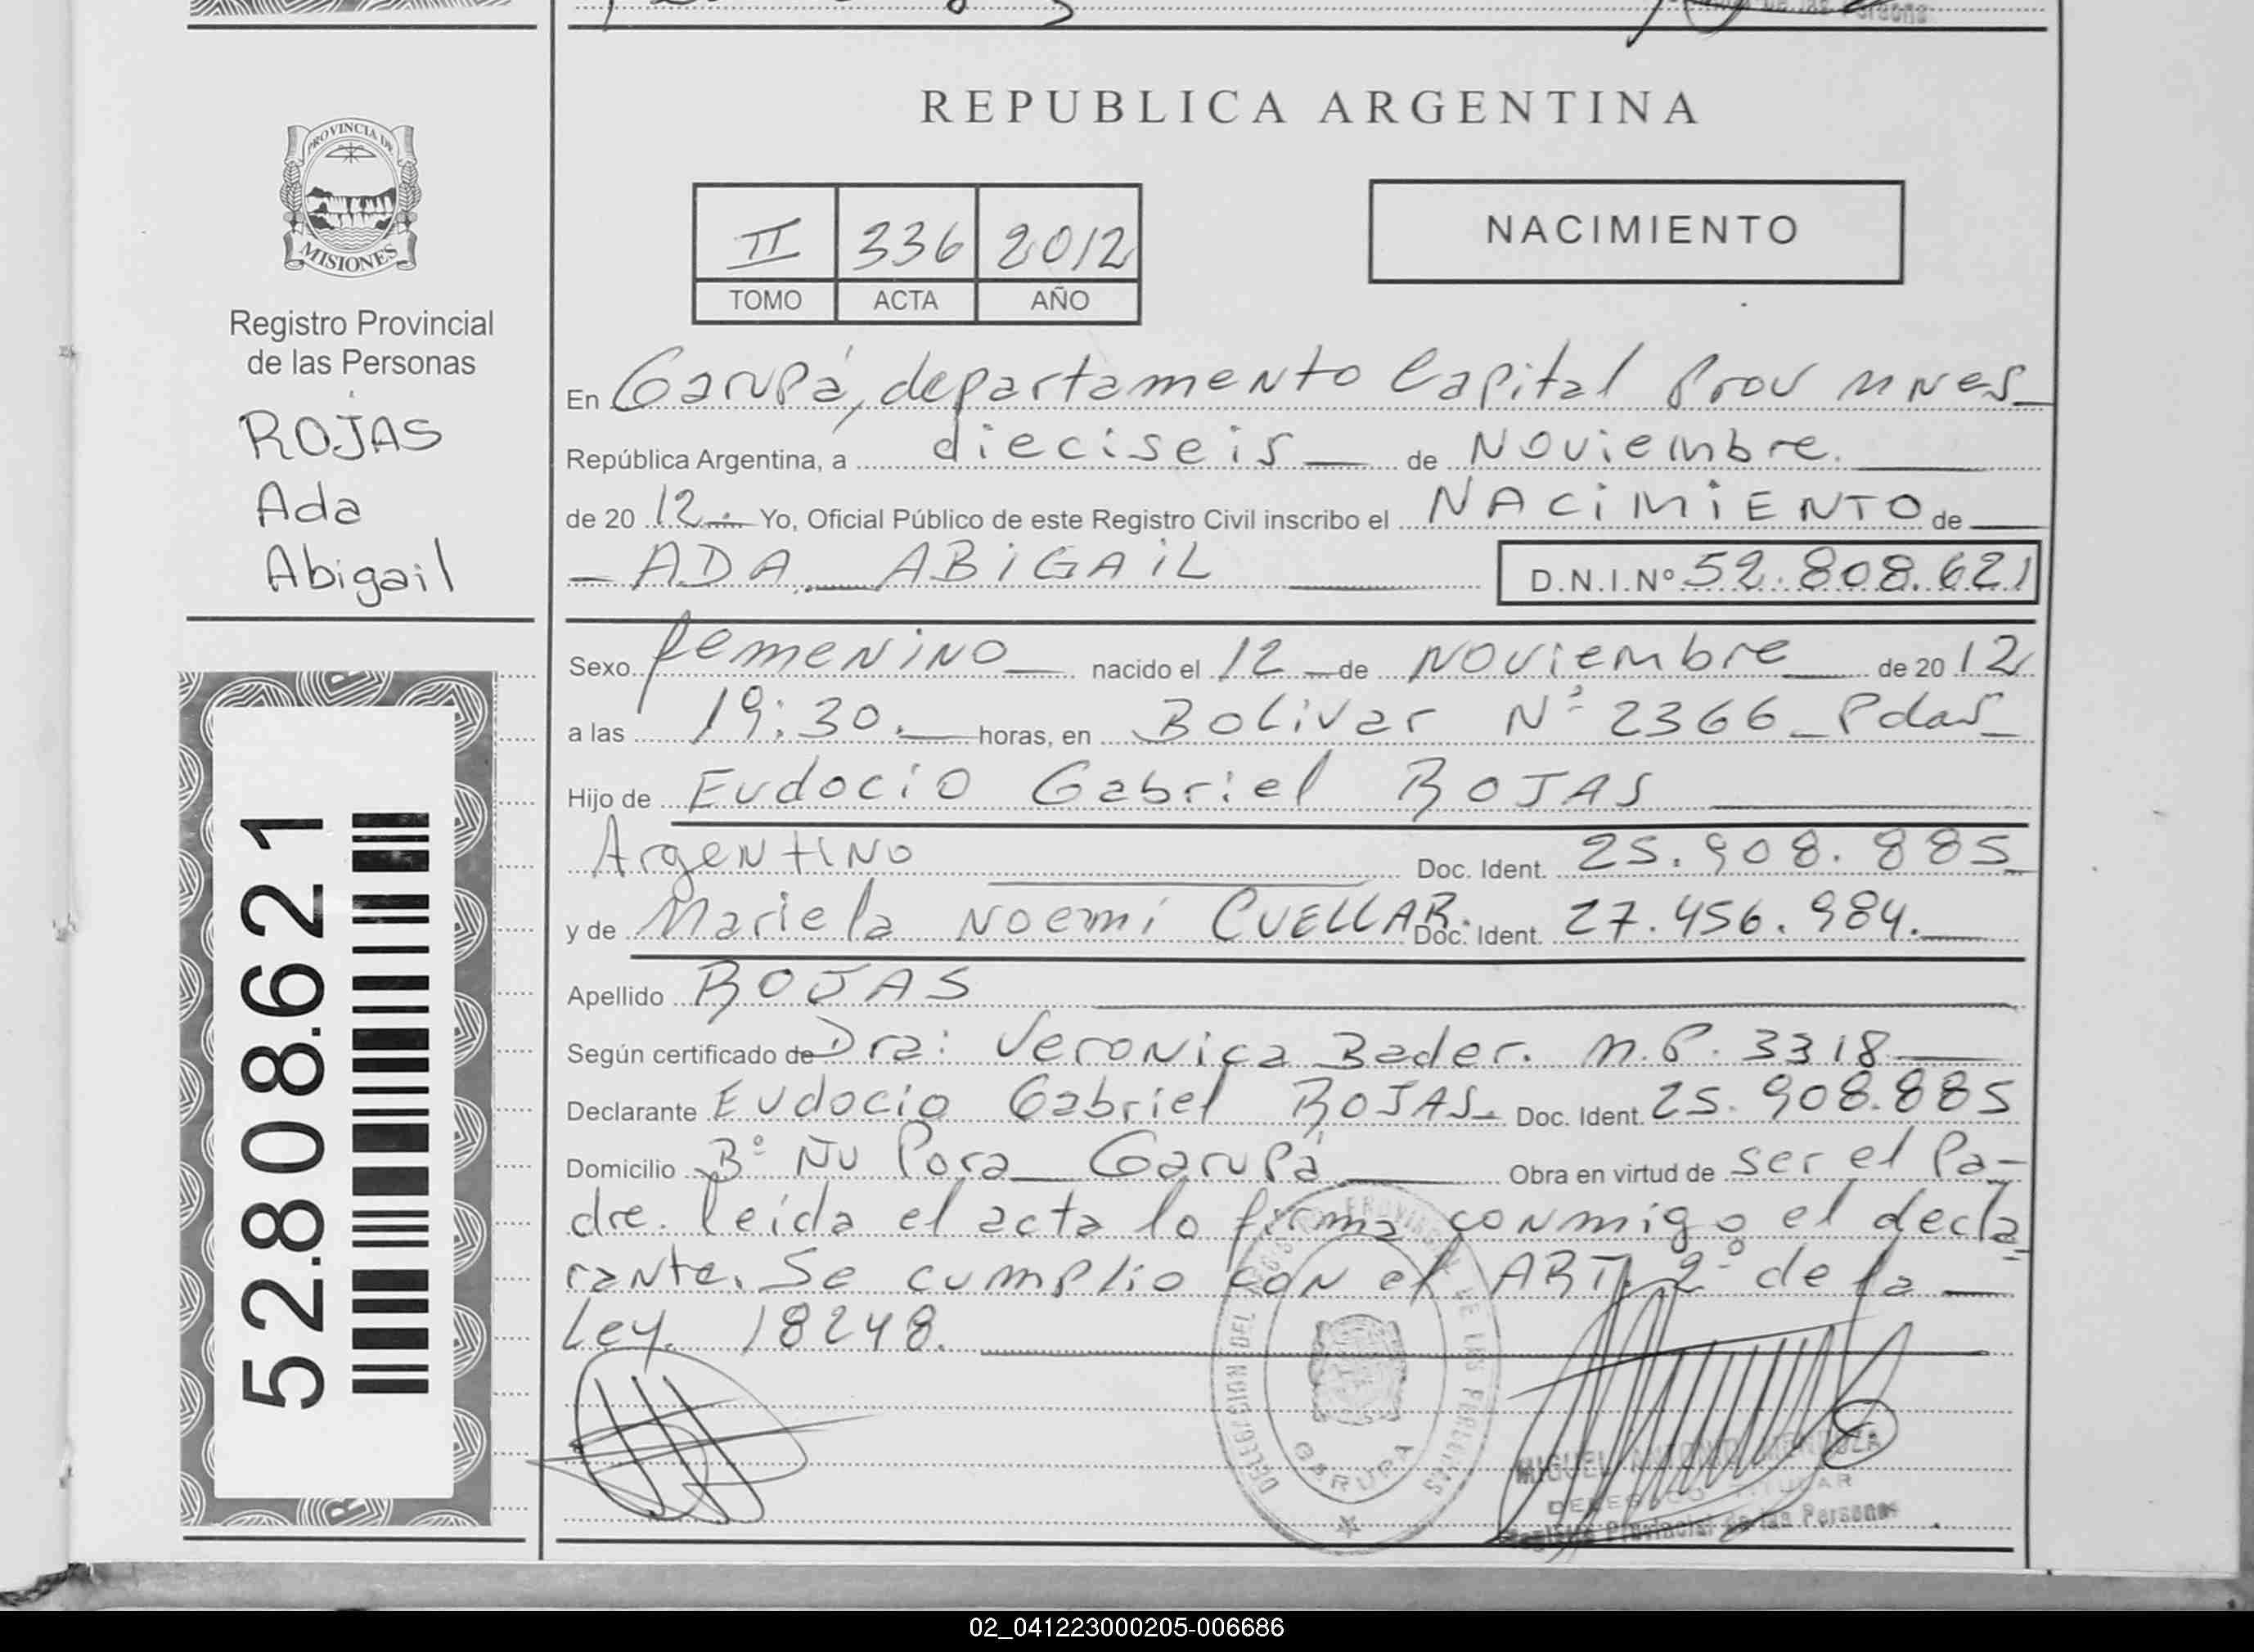 REPUBLICA ARGENTINA
PROVINCIA DE
MISIONES
Registro Provincial
de las Personas
ROJAS
Ada
Abigail
52.808.621
II 336 2012
TOMO ACTA AÑO
NACIMIENTO
En Garupá, departamento Capital Prov MNes
República Argentina, a dieciseis de Noviembre.
de 20 12. Yo, Oficial Público de este Registro Civil inscribo el NACIMIENTO de
ADA ABIGAIL D.N.I.Nº 52.808.621
Sexo femenino nacido el 12 de Noviembre de 20 12
a las 19:30. horas, en Bolivar Nº 2366 Pdas
Hijo de Eudocio Gabriel ROJAS
Argentino Doc. Ident. 25.908.885
y de Mariela Noemí CUELLAR. Doc. Ident. 27.456.984.
Apellido ROJAS
Según certificado de Dra: Veronica Bader. M.P. 3318
Declarante Eudocio Gabriel ROJAS. Doc. Ident. 25.908.885
Domicilio Bº Ñu Pora Garupá Obra en virtud de ser el Pa-
dre. leida el acta lo firma conmigo el decla
rante. Se cumplio con el ART. 2º de la
Ley. 18248.
DELEGACION DEL REGISTRO PROVINCIAL DE LAS PERSONAS
GARUPA
MIGUEL ANTONIO MENDOZA
DELEGADO TITULAR
Registro Provincial de las Personas
02_041223000205-006686